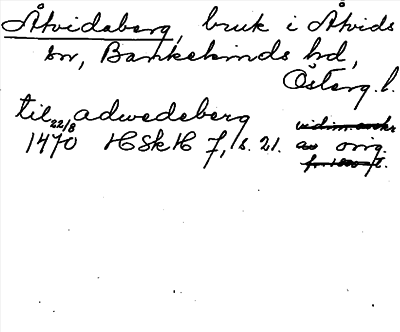 Åtvidaberg, bruk i Åtvids
sn, Bankekinds hd,
Österg. l.
til adwedeberg
22/8
1470 HSkH 7, s. 21. av orig.